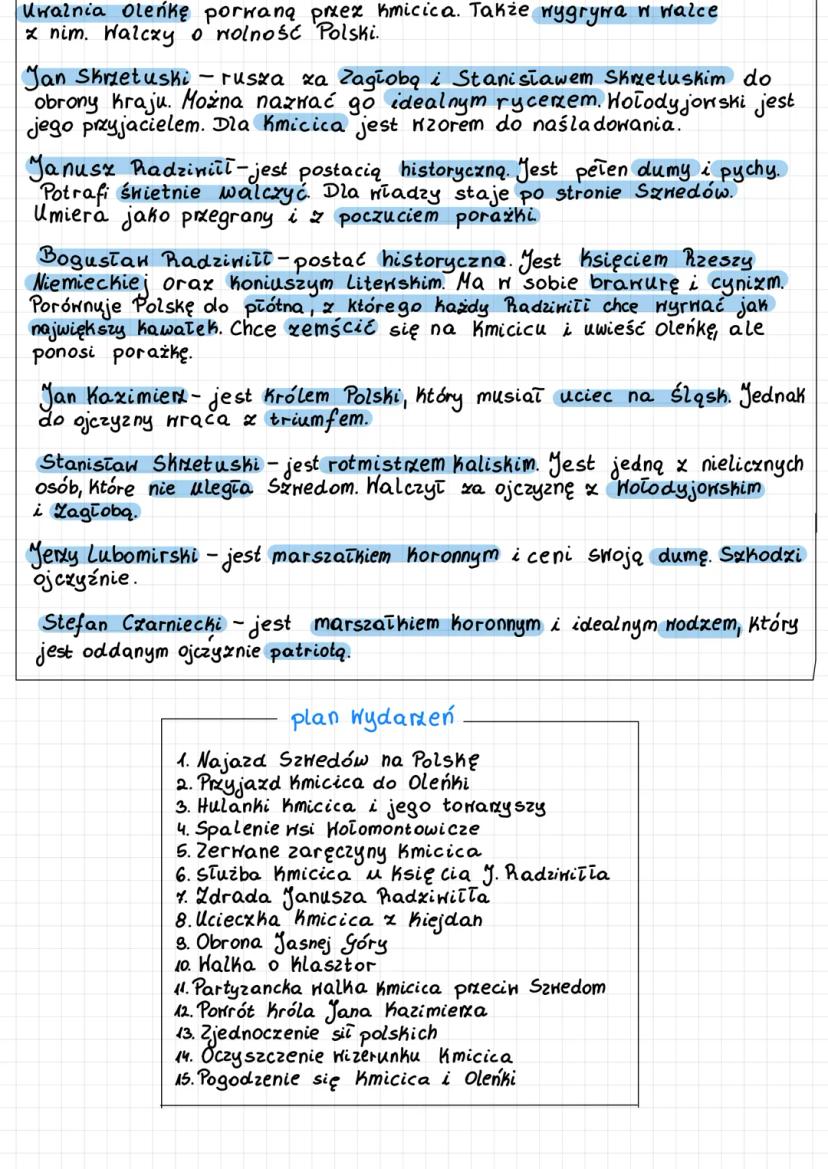 Uwalnia Oleńkę porwaną przez Kmicica. Także wygrywa w walce
z nim. Walczy o wolność Polski.
Jan Skrzetuski – rusza za Zagłobą i Stanisławem Skrzetuskim do
obrony kraju. Można nazwać go idealnym rycerzem. Wołodyjowski jest
jego przyjacielem. Dla Kmicica jest wzorem do naśladowania.
Janusz Radziwiłł – jest postacią historyczną. Jest pełen dumy i pychy.
Potrafi świetnie walczyć. Dla władzy staje po stronie Szwedów.
Umiera jako przegrany i z poczuciem porażki.
Bogusław Radziwiłł – postać historyczna. Jest księciem Rzeszy
Niemieckiej oraz koniuszym litewskim. Ma w sobie brawurę i cynizm.
Porównuje Polskę do płótna, z którego każdy Radziwiłł chce wyrwać jak
największy kawałek. Chce zemścić się na Kmicicu i uwieść Oleńkę, ale
ponosi porażkę.
Jan Kazimierz – jest królem Polski, który musiał uciec na Śląsk. Jednak
do ojczyzny wraca z triumfem.
Stanisław Skrzetuski – jest rotmistrzem kaliskim. Jest jedną z nielicznych
osób, które nie uległa Szwedom. Walczył za ojczyznę z Wołodyjowskim
i Zagłobą.
Jerzy Lubomirski – jest marszałkiem koronnym i ceni swoją dumę. Szkodzi
ojczyźnie.
Stefan Czarniecki – jest marszałkiem koronnym i idealnym wodzem, który
jest oddanym ojczyźnie patriotą.
plan wydarzeń
1. Najazd Szwedów na Polskę
2. Przyjazd Kmicica do Oleńki
3. Hulanki Kmicica i jego towarzyszy
4. Spalenie wsi Wołomontowicze
5. Zerwane zaręczyny Kmicica
6. Służba Kmicica u księcia J. Radziwiłła
7. Zdrada Janusza Radziwiłła
8. Ucieczka Kmicica z Kiejdan
9. Obrona Jasnej Góry
10. Walka o klasztor
11. Partyzancka walka Kmicica przeciw Szwedom
12. Powrót króla Jana Kazimierza
13. Zjednoczenie sił polskich
14. Oczyszczenie wizerunku Kmicica
15. Pogodzenie się Kmicica i Oleńki